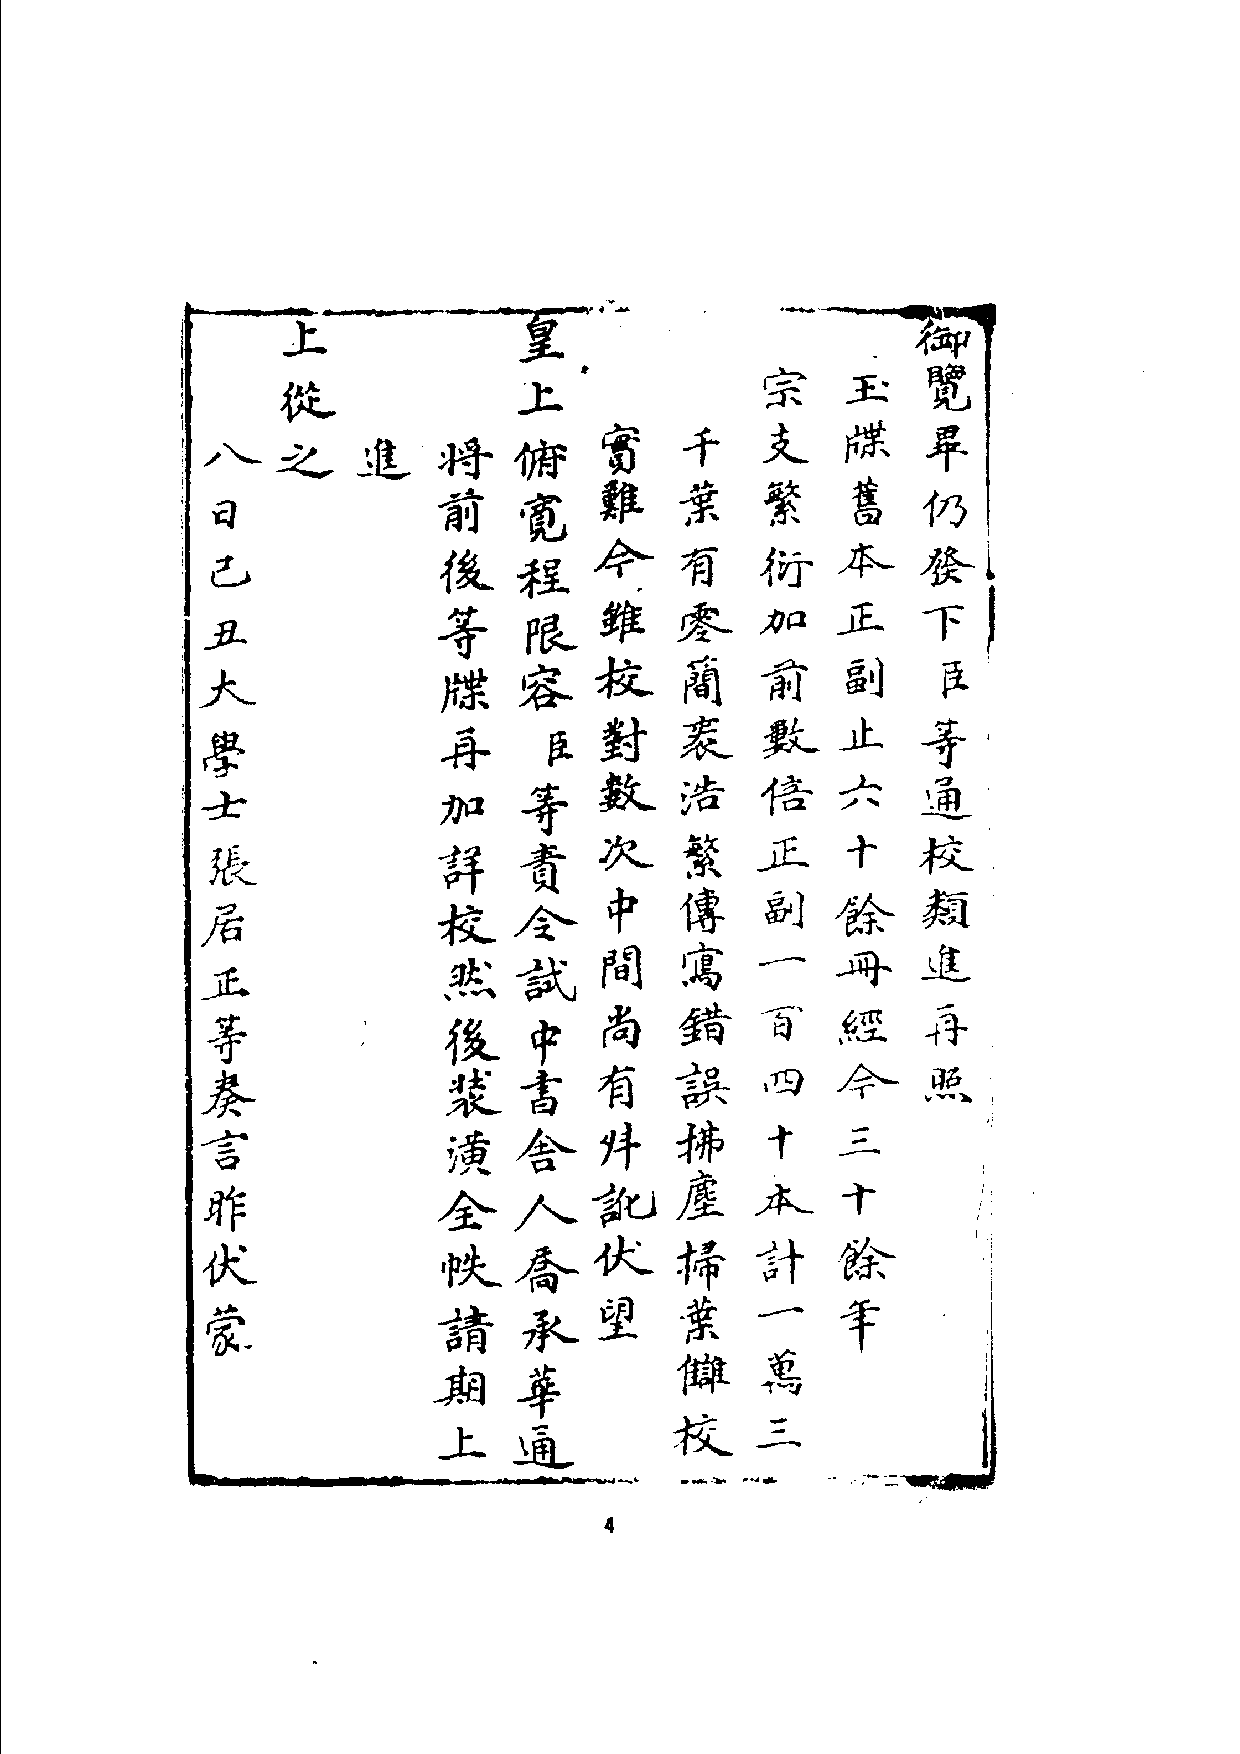 御覽畢仍發下臣等通校類進再照
玉牒舊本正副止六十餘冊經今三十餘年
宗支繁衍加前數倍正副一百四十本計一萬三
千葉有零簡袠浩繁傳寫錯誤拂塵掃葉讎校
實難今雖校對數次中間尚有舛訛伏望
皇上俯寬程限容臣等責令試中書舍人喬承華通
將前後等牒再加詳校然後裝潢全帙請期上
進
上從之
八日己丑大學士張居正等奏言昨伏蒙
4